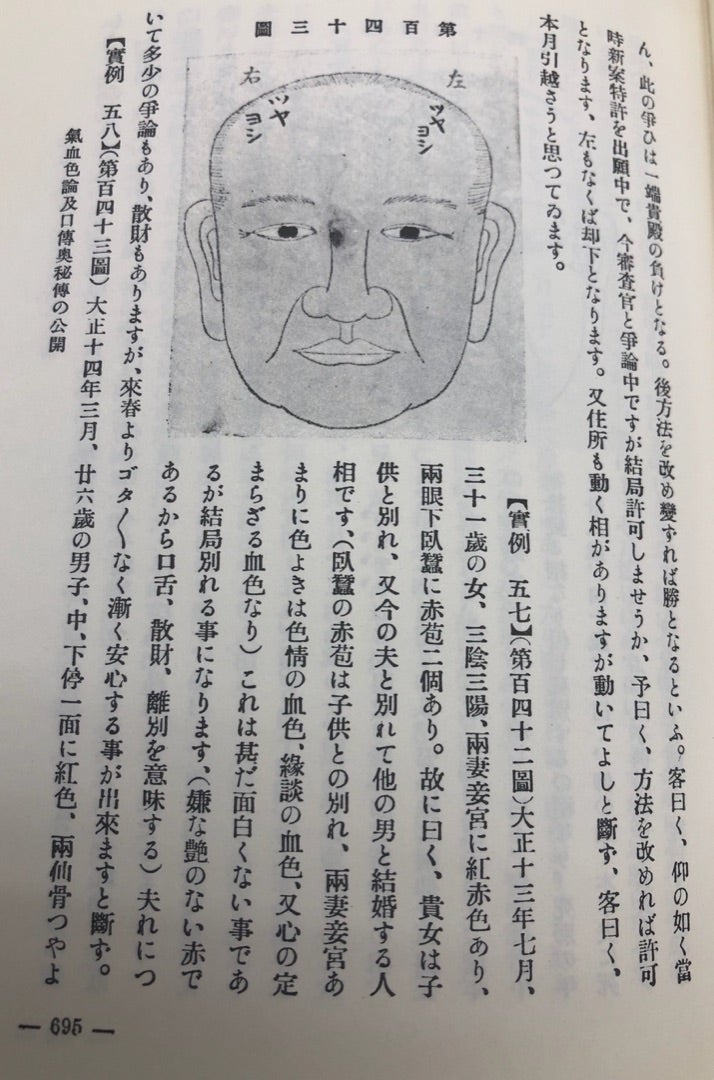 ん、此の爭ひは一端貴殿の負けとなる。後方法を改め變ずれば勝となるといふ。客曰く、仰の如く當
時新案特許を出願中で、今審査官と爭論中ですが結局許可しませうか、予曰く、方法を改めれば許可
となります、左もなくば却下となります。又住所も動く相がありますが動いてよしと斷ず、客曰く、
本月引越さうと思つてゐます。
第百四十三圖
左
ツヤ
ヨシ
右
ツヤ
ヨシ
【實例 五七】(第百四十二圖)大正十三年七月、
三十一歲の女、三陰三陽、兩妻妾宮に紅赤色あり、
兩眼下臥蠶に赤苞二個あり。故に曰く、貴女は子
供と別れ、又今の夫と別れて他の男と結婚する人
相です、(臥蠶の赤苞は子供との別れ、兩妻妾宮あ
まりに色よきは色情の血色、緣談の血色、又心の定
まらざる血色なり)これは甚だ面白くない事であ
るが結局別れる事になります、(嫌な艷のない赤で
あるから口舌、散財、離別を意味する)夫れにつ
いて多少の爭論もあり、散財もありますが、來春よりゴタ〱なく漸く安心する事が出來ますと斷ず。
【實例 五八】(第百四十三圖)大正十四年三月、廿六歲の男子、中、下停一面に紅色、兩仙骨つやよ
氣血色論及口傳奥秘傳の公開
— 695 —